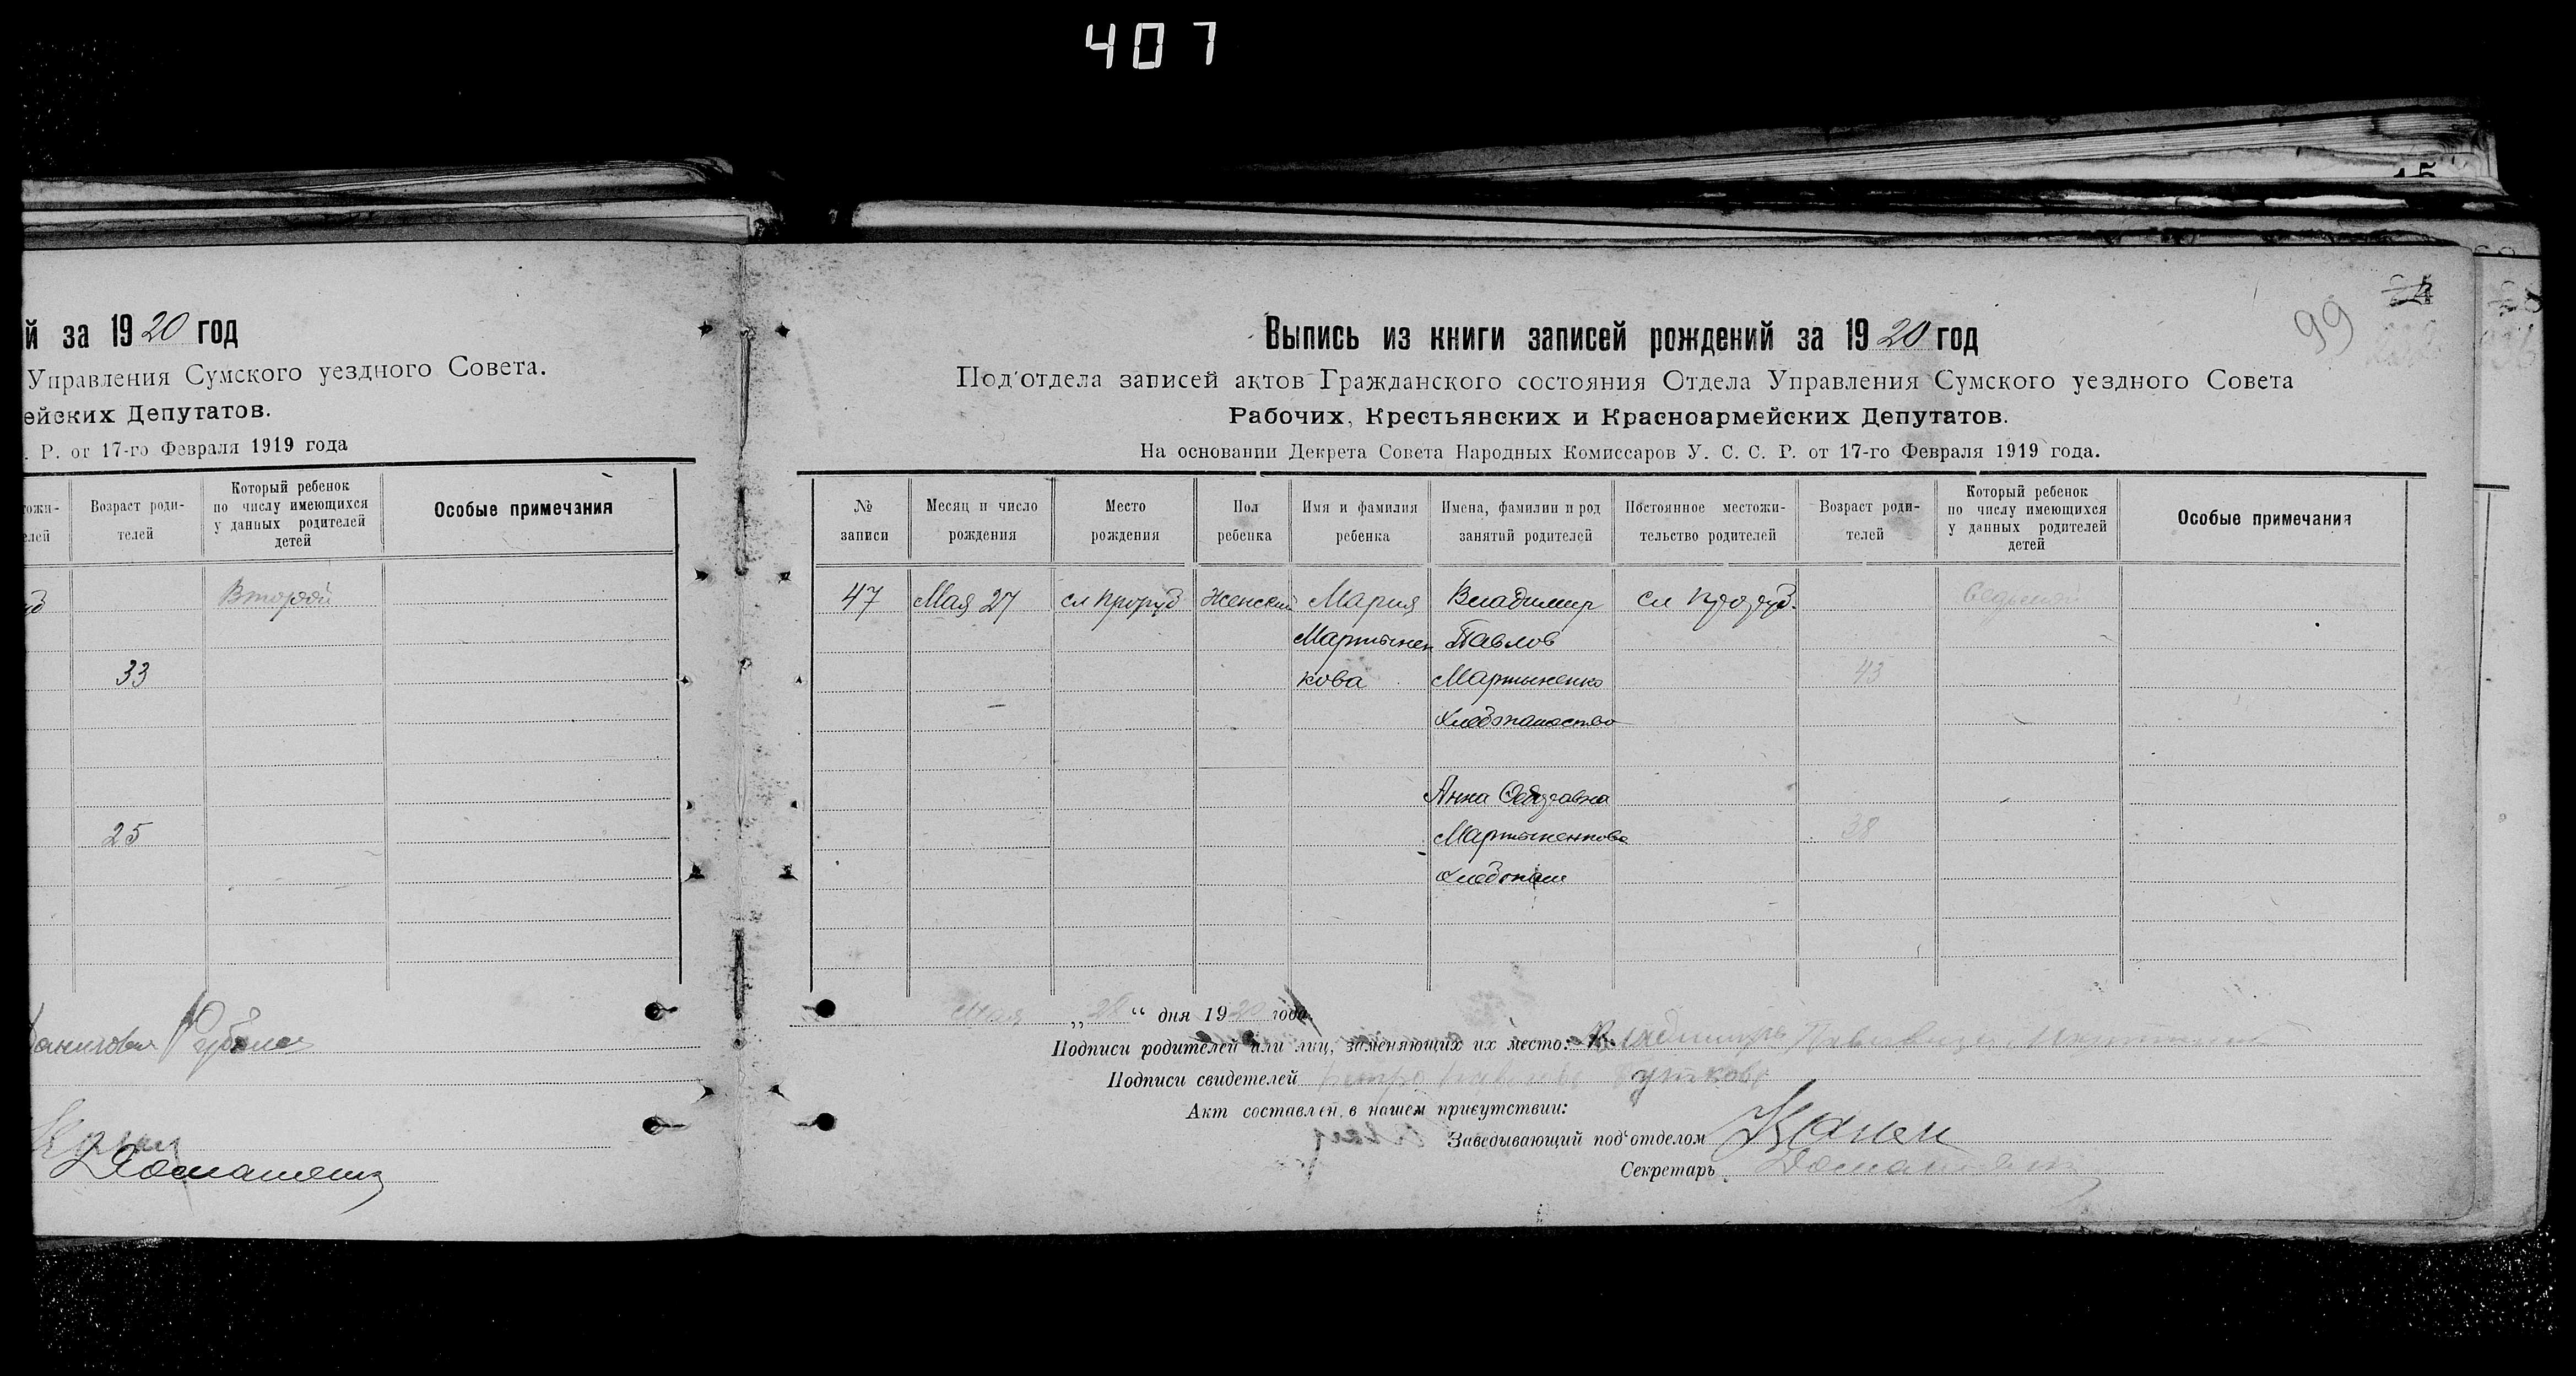 407
й за 1920 год
Управления Сумского уездного Совета.
ейских Депутатов.
. Р. от 17-го Февраля 1919 года
Возраст роди-
телей
Который ребенок
по числу имеющихся
у данных родителей
детей
Особые примечания
Второй
33
25
Домашенко
99
Выпись из книги записей рождений за 1920 год
Под'отдела записей актов Гражданского состояния Отдела Управления Сумского уездного Совета
Рабочих, Крестьянских и Красноармейских Депутатов.
На основании Декрета Совета Народных Комиссаров У. С. С. Р. от 17-го Февраля 1919 года.
№
записи
Месяц и число
рождения
Место
рождения
Пол
ребенка
Имя и фамилия
ребенка
Имена, фамилии и род
занятий родителей
Постоянное местожи-
тельство родителей
Возраст роди-
телей
Который ребенок
по числу имеющихся
у данных родителей
детей
Особые примечания
47 Мая 27 сл Проруб Женский Мария Владимир сл Проруб. Седьмой
Мартынен Павлов
кова Мартыненко 43
Хлебопашество
Анна
Мартыненкова 38
Хлебопаш
Мая „28“ дня 1920 года.
Подписи родителей или лиц, заменяющих их место: Владимир Павлович
Подписи свидетелей
Акт составлен в нашем присутствии:
Заведывающий под'отделом
Секретарь Домашенко